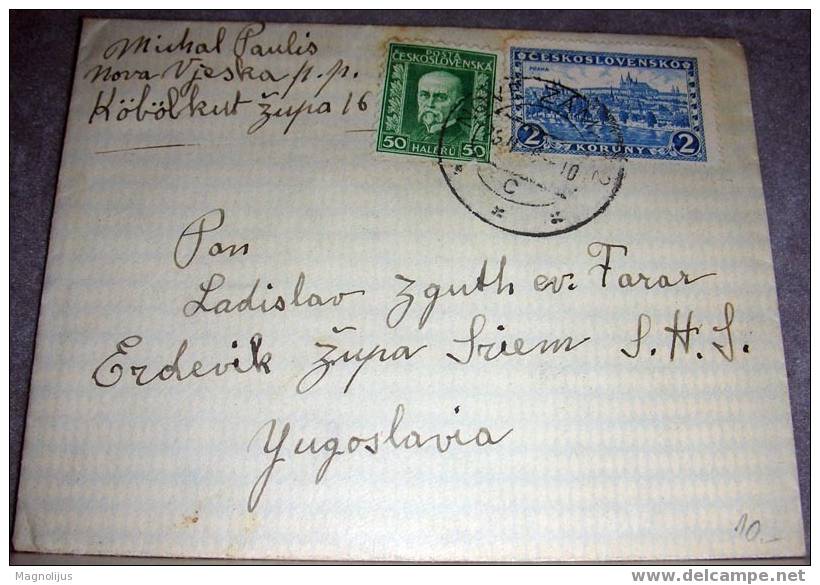 Michal Paulis
Nova Vjeska p.p.
Köbölkut župa 16
POSTA
ČESKOSLOVENSKÁ
50 HALÉŘŮ 50
ČESKOSLOVENSKO
PRAHA
2 KORUNY 2
C
Pan
Ladislav Zguth ev. Farar
Erdevik župa Sriem S.H.S.
Yugoslavia
10.-
Magnolijus
www.delcampe.net